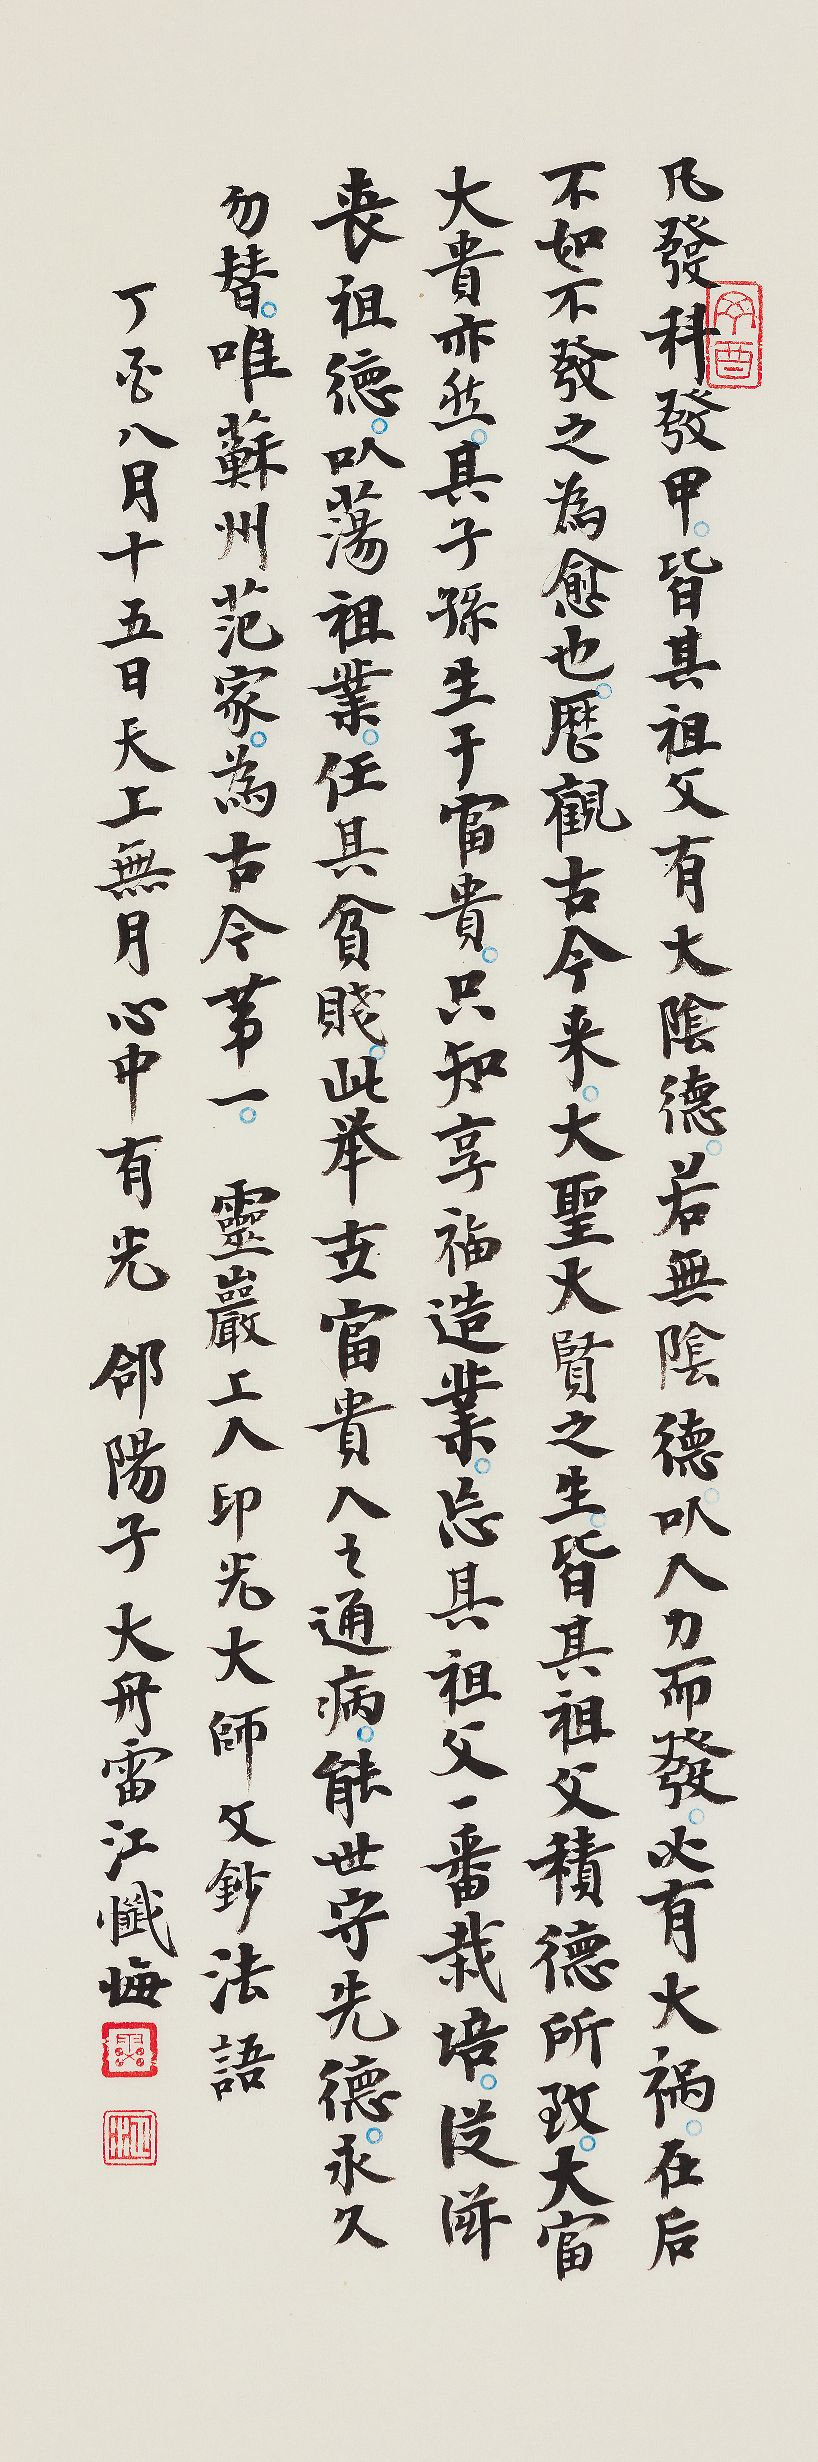 凡發科發甲。皆其祖父有大陰德。若無陰德。以人力而發。必有大祸。在后
不如不發之為愈也。歷觀古今来。大聖大賢之生。皆其祖父積德所致。大富
大貴亦然。其子孫生于富貴。只知享福造業。忘其祖父一番栽培。從此
丧祖德。以蕩祖業。任其貧賤。此举世富貴人之通病。能世守先德。永久
勿替。唯蘇州范家。為古今苐一。 靈巖上人印光大師文鈔法語
丁酉八月十五日天上無月心中有光 郃陽子大舟雷江懺悔
丁酉
雷
江